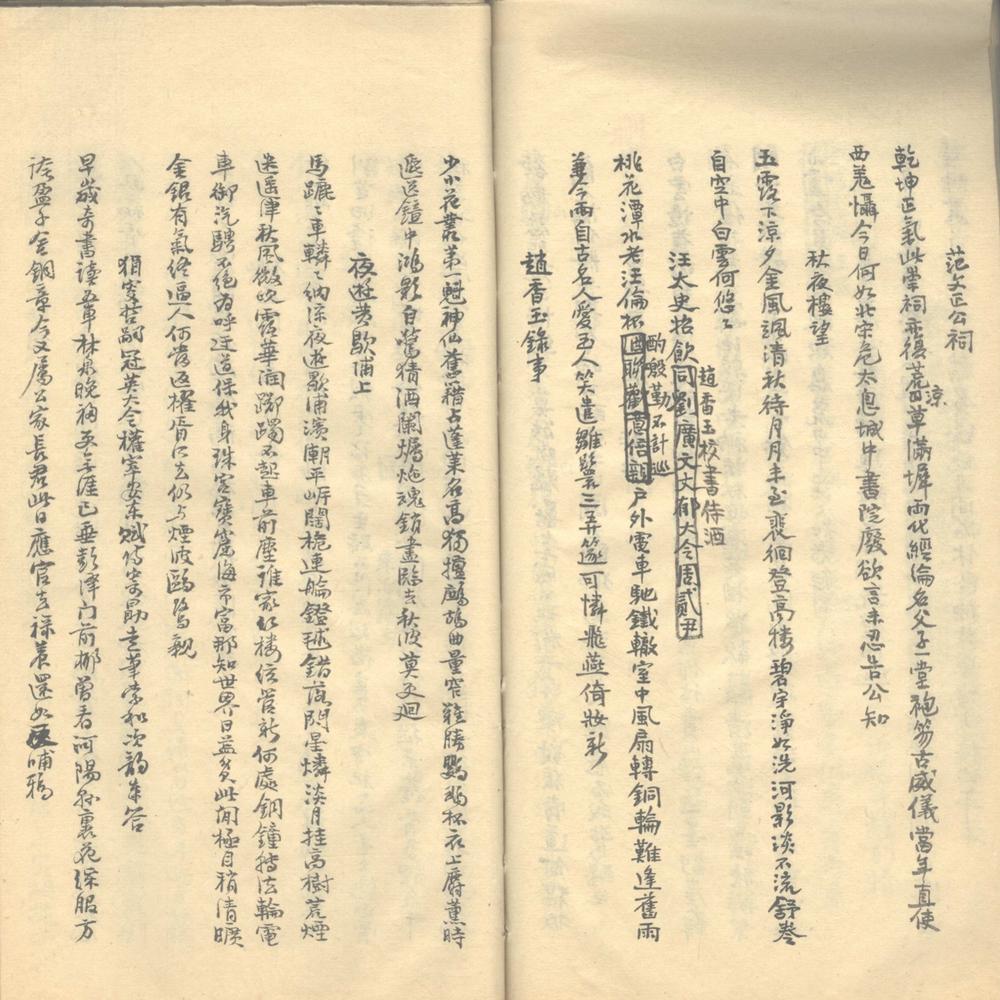 范文正公祠
乾坤正氣此崇祠无復荒涼草滿墀兩代經綸名父子一堂袍笏古威儀當年直使
西羌懾今日何如北宋危太息城中書院廢欲言未忍告公知
秋夜樓望
玉露下涼夕金風颯清秋待月月未至裴徊登高樓碧宇淨如洗河影淡不流舒卷
自空中白雲何悠悠
汪太史招飲同劉廣文大郁大令周貳尹
趙香玉校書侍酒
桃花潭水老汪倫杯酌殷勤不計巡戶外電車馳鐵轍室中風扇轉銅輪難逢舊雨
兼今雨自古名人愛玉人笑遣雛鬟三弄篴可憐飛燕倚妝新
趙香玉錄事
少小花叢第一魁神仙舊籍占蓬萊名高獨擅鷓鴣曲量窄難勝鸚鵡杯衣上麝薰時
遞送鏡中鴻影自驚猜酒闌燭灺魂銷盡臨去秋波莫更迴
夜遊黃歇浦上
馬蹏車轔納涼夜遊歇浦濱潮平岸闊桅連舳鐙毬錯落閃星燐淡月挂高樹荒煙
迷遙津秋風微吹露華潤躑躅不起車前塵誰家紅樓絃管新何處銅鐘轉法輪電
車御汽騁不絕為呼迂道保我身珠宮寶窟海市富那知世界日益貧此間極目稍清曠
金銀有氣終逼人何當返櫂胥口去仍与煙波鷗鷺親
冠英大令權宰婁東賦詩索和次韵奉答
早歲奇書讀等車林泉晚福更無涯已垂彭澤門前柳曾看河陽縣裏花綵服方
誇盈子舍銅章今又屬公家長君此日應官去祿養還如返哺鴉